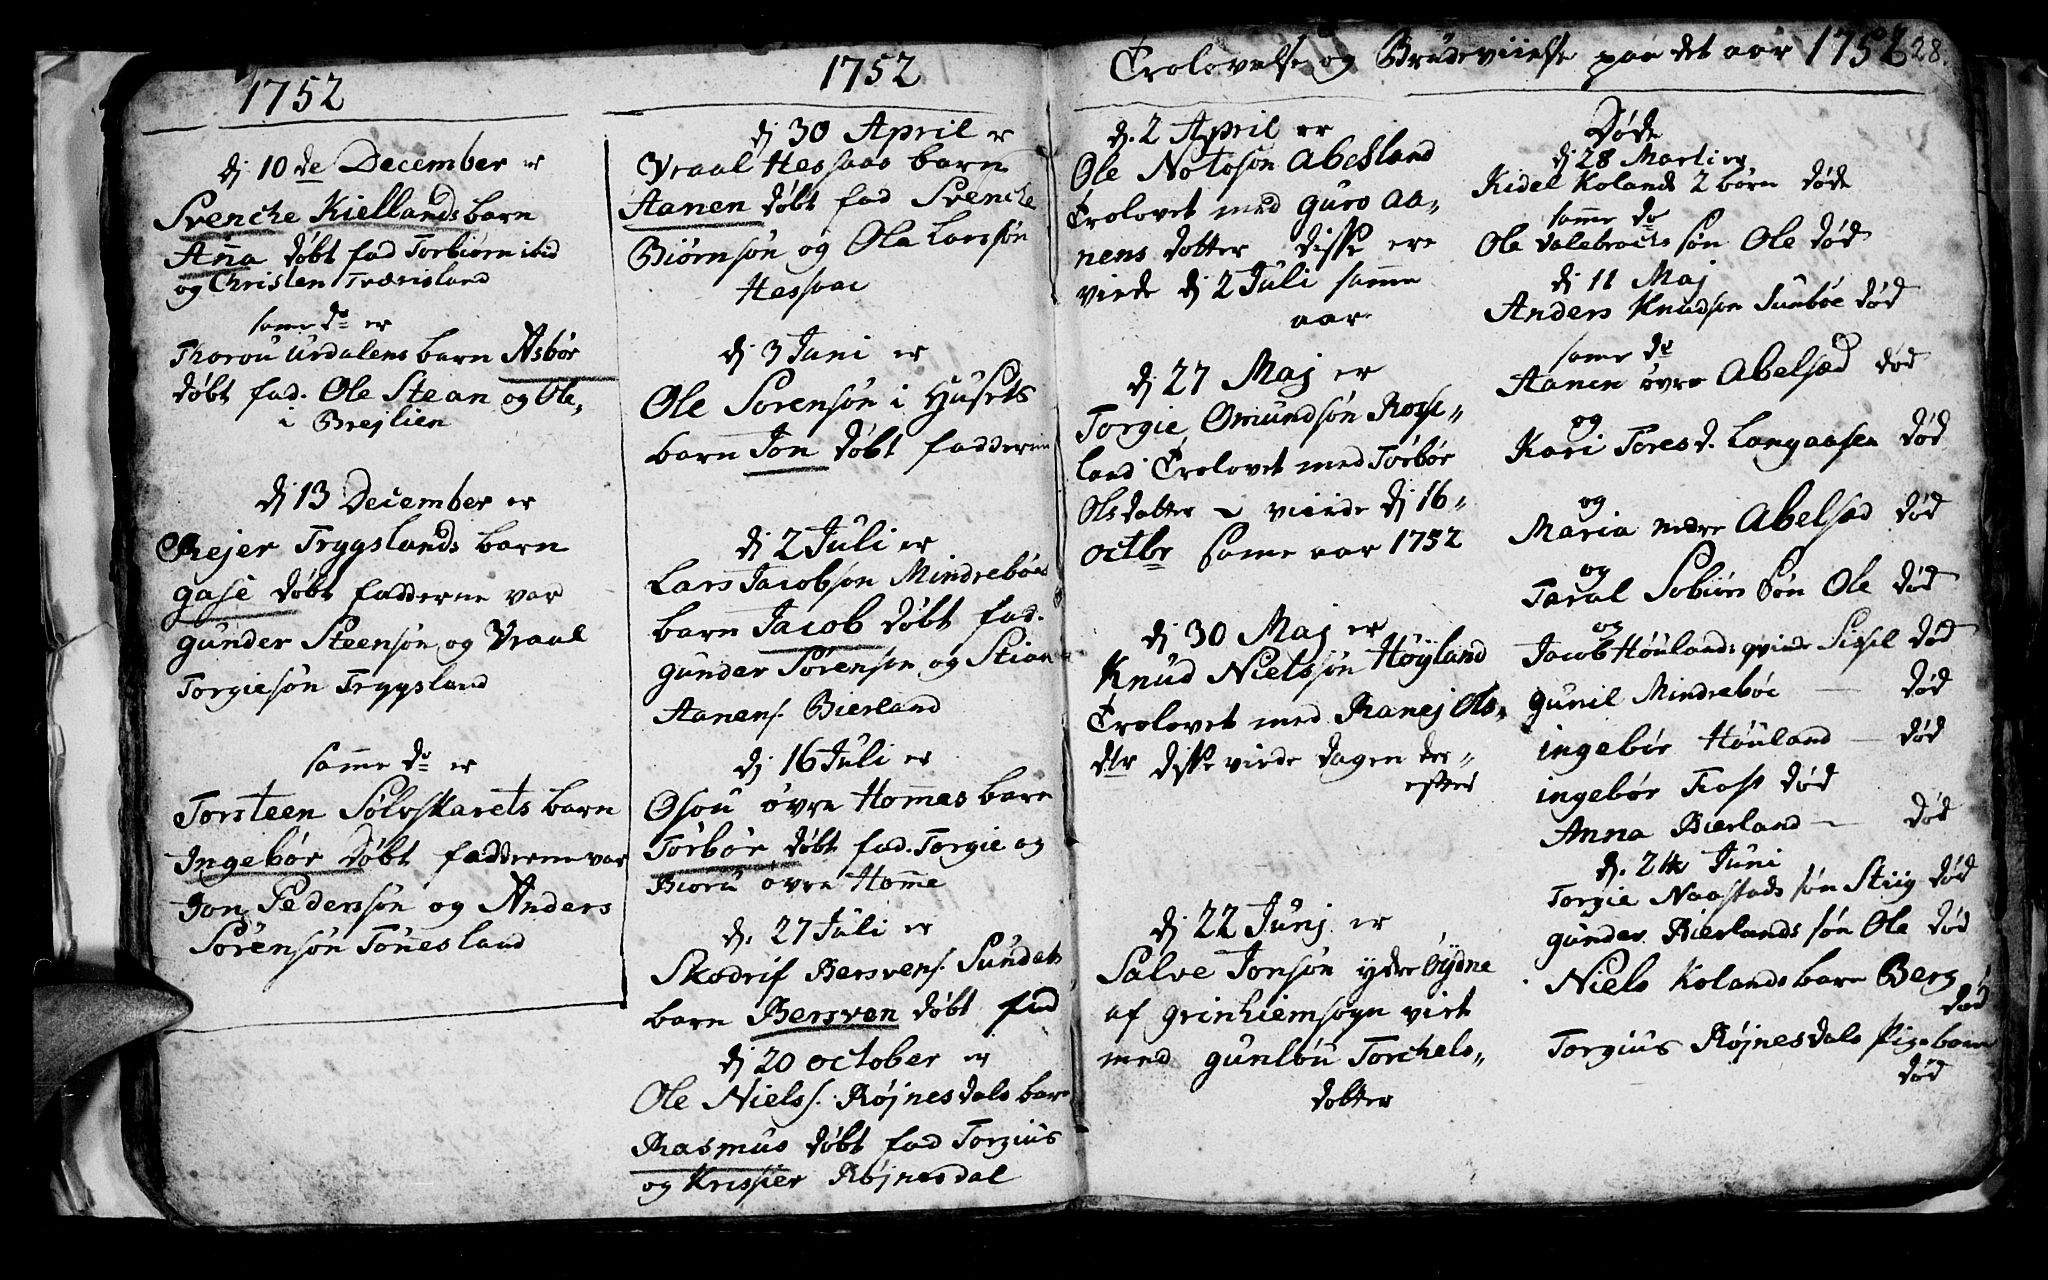 1752
dj 10 de December er
Svenche Kiellands barn
Anna døbt fad Torbiørn ibid
og Christen Trærisland
same do er
Thorou Urdalens barn Asbør
døbt fad. Ole Stean og Ole,
i Brejlien
dj 13 December er
Rejer Trygslands barn
gase døbt fadderne var
gunder Steensøn og Vraal
Torgiesøn Trygsland
samme do er
Torsteen Sølvskarets barn
Ingebør døbt fadderne var
Jon Pedersøn og Anders
Sørensøn Tønesland
1752
dj 30 April er
Vraal Hessaas barn
Aanen døbt fad Svenche
Biørnsøn og Ola Larssøn
Hessaae
dj 3 Juni er
Ole Sørensøn i Husets
barn Jon døbt fadderne
dj 2 Juli er
Lars Jacobsøn Mindrebøes
barn Jacob døbt fad.
gunder Sørensøn og Stian
Aanens. Bierland
dj 16 Juli er
Osou øvre Hommes barn
Torbør døbt fad. Torgie og
Biorū øvre Homme
d. 27 Juli er
Skodrif Bersvens. Sundets
barn Bersven døbt fad
dj 20 october er
Ole Niels s. Røjnesdals barn
Rasmus døbt fad Torgius
og Kristier Røjnesdal
Trolovelse og Brudeviielse paa det aar 1752 28.
d. 2 April er
Ole Notosøn Abesland
Trolovet med guro Aa„
nens dotter disse ere
viede dj 2 Juli samme
aar
dj 27 Maj er
Torgie Omundsøn Rosse„
land Trolovet med Torbør
Olsdatter viiede dj 16„
octbr same aar 1752
dj 30 Maj er
Knud Nielssøn Høyland
Trolovet med Ranej Ols„
dtr disse viede dagen der„
efter
dj 22 Junj er
Salve Jonsøn ydre Øydne
af grinhiem sogn viet
med gunlou Torchels„
dotter
Døde
dj 28 Marti er
Kidel Kolands 2 børn døde
samme do
Ole dalebrochs søn Ole død
dj 11 Maj
Anders Knudsøn Sunbøe død
same do
Aanen øvre Abelsæd død
og
Kari Tores d. Langaasen død
og
Maria nedre Abelsæd død
og
Taral Sobiørs søn Ole død
og
Jacob Høulands qvinde Sissel død
gunil Mindrebøe — død
ingebør Høuland — død
ingebør Fost død
Anna Bierland — død
d. 24 Juni
Torgie Naastads søn Stiig død
gunder Bierlands søn Ole død
Niels Kolands barn Berg
død
Torgius Røjnesdals Pigebarn
død